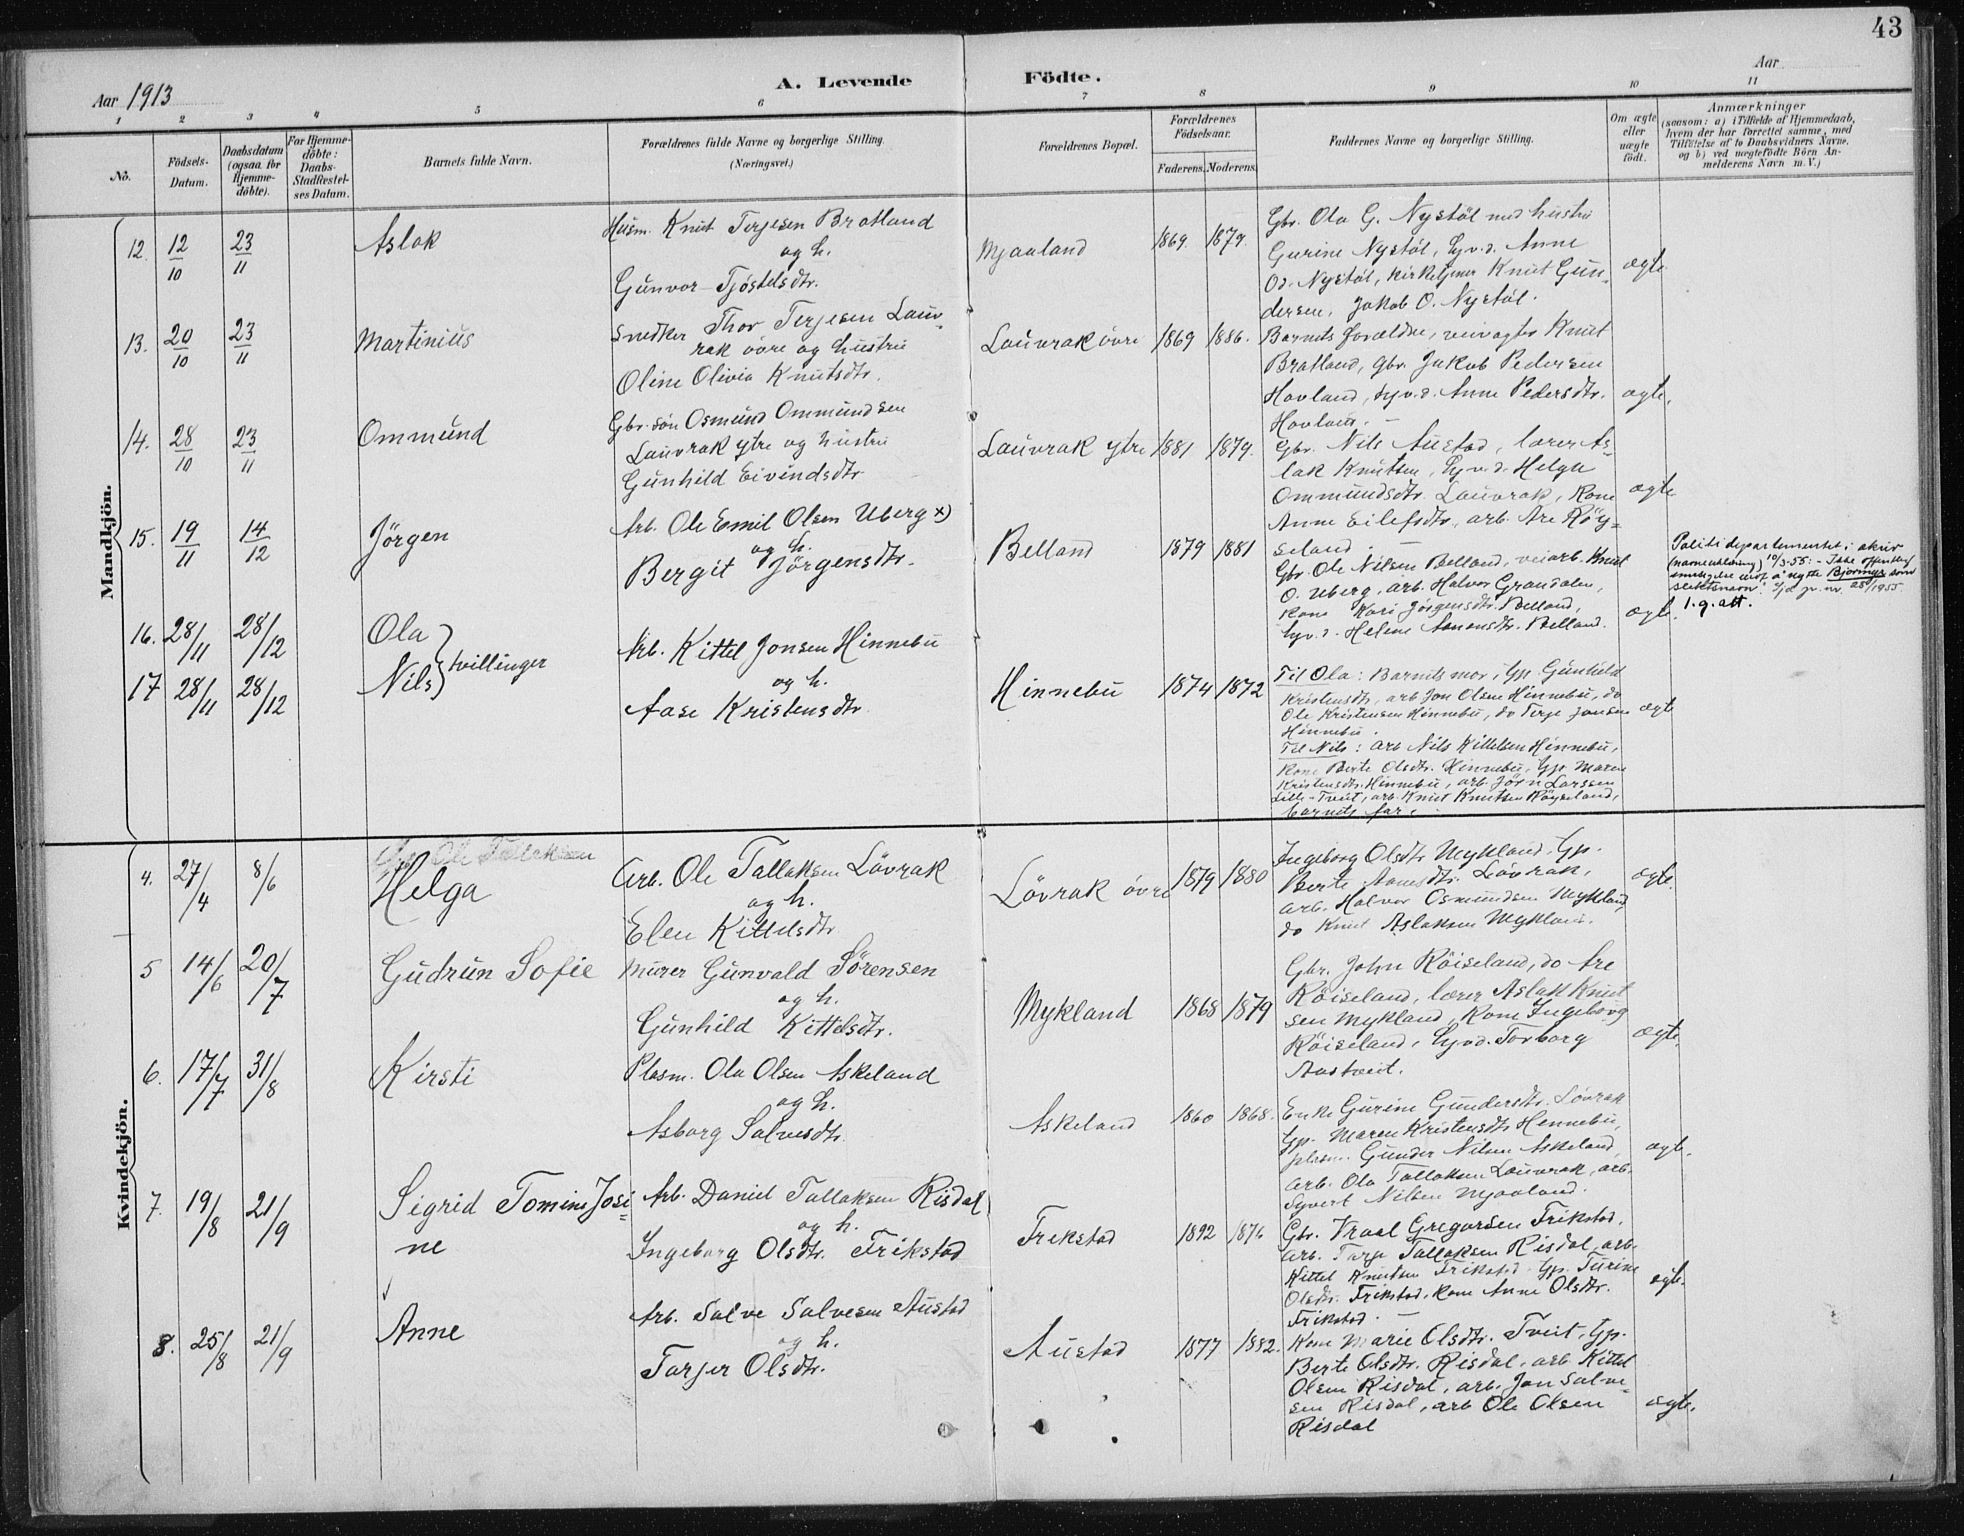 43
Aar 1913
A. Levende Födte.
Aar
1 2 3 4 5 6 7 8 9 10 11
No.
Födsels-
Datum.
Daabsdatum
(ogsaa for
Hjemme-
döbte).
For Hjemme-
döbte:
Daabs-
Stadfæstel-
ses Datum.
Barnets fulde Navn.
Forældrenes fulde Navne og borgerlige Stilling.
(Næringsvei.)
Forældrenes Bopæl.
Forældrenes
Födselsaar.
Faderens. Moderens.
Faddernes Navne og borgerlige Stilling.
Om ægte
eller
uægte
født.
Anmærkninger
(saasom: a) i Tilfælde af Hjemmedaab,
hvem der har forrettet samme, med
Tilføielse af to Daabsvidners Navne,
og b) ved uægtefödte Börn An-
melderens Navn m. V.)
Mandkjön.
12. 12/10 23/11 Aslak
Husm. Knut Terjesen Bratland
og h.
Gunvor Tjøstelsdtr.
Mjaaland 1869. 1879.
Gbr. Ola G. Nystöl med hustru
Gurine Nystöl, Gjv.d. Anne
Od. Nystöl, kirketjener Knut Gun-
dersen, Jakob O. Nystöl.
ægte
13. 20/10 23/11 Martinius
Snedker Thor Terjesen Lauv-
rak övre og hustru
Oline Olivia Knutsdtr.
Lauvrak övre 1869 1886.
Barnets forældre, veivogter Knut
Bratland, Gbr. Jakob Pedersen
Hovland, Gjv.d. Anne Pedersdtr.
Hovland. -
ægte.
14. 28/10 23/11 Ommund
Gbr.sön Osmund Ommundsen
Lauvrak ytre og hustru
Gunhild Eivindsdtr
Lauvrak ytre 1881 1879.
Gbr. Nils Austad, lærer As-
lak Knutsen, Gjv.d. Helga
Ommundsdtr. Lauvrak, Kone
Anne Eilefsdtr, arb. Are Röy-
seland. -
ægte
15. 19/11 14/12 Jörgen
Arb. Ole Emil Olsen Uberg x)
og h.
Bergit Jörgensdtr.
Belland 1879 1881
Gbr. Ole Nilsen Belland, veiarb. Knut
O. Uberg, arb. Halvor Grandalen,
Kone Kari Jörgensdtr. Belland,
Gjv.d. Helene Aanensdtr. Belland.
ægte.
Politidepartementet i skriv
10/3-55: - Ikke offentlig
å nytte Bjorninge som
slektsnavn. jr. nr. 28/1955.
1.g.att.
16. 28/11 28/12 Ola
17 28/11 28/12 Nils } tvillinger
Arb. Kittel Jonsen Hinnebu
og h.
Aase Kristensdtr
Hinnebu 1874 1872
Til Ola: Barnets mor, Gp. Gunhild
Kristensdtr, arb Jon Olsen Hinnebu, do
Ole Kristensen Hinnebu, do Terje Jonsen
Hinnebu.
Til Nils: arb Nils Kittelsen Hinnebu,
Kone Berte Olsdtr. Hinnebu, Gp. Maren
Kristensdtr. Hinnebu, arb. Jörn Larssen
Lille-Tveit, arb. Knut Knutsen Röyseland,
barnets far.
ægte
Kvindekjön.
4. 27/4 8/6 Helga
Arb. Ole Tallaksen Lövrak
og h.
Elen Kittelsdtr
Lövrak övre 1879 1880
Ingeborg Olsdtr Mykland, Gp.
Berte Aanesdtr. Lövrak,
arb. Halvor Osmundsen Mykland,
do Knut Aslaksen Mykland.
ægte.
5 14/6 20/7 Gudrun Sofie
Murer Gunvald Sörensen
og h.
Gunhild Kittelsdtr.
Mykland 1868 1879
Gbr. John Röiseland, do Are
Röiseland, lærer Aslak Knut
sen Mykland, Kone Ingeborg
Röiseland, Gjv.d. Torborg
Austveit.
ægte.
6. 17/7 31/8 Kirsti
Plasm. Ola Olsen Askeland
og h.
Asborg Salvesdtr.
Askeland 1860 1868.
Enke Gurine Gundersdtr. Lövrak
Gp. Maren Kristensdtr Hennebu,
plasm. Gunder Nilsen Askeland,
arb. Ola Tallaksen Lauvrak, arb.
Syvert Nilsen Mjaaland.
ægte.
7. 19/8 21/9 Sigrid Tomine Josi-
ne
Arb. Daniel Tallaksen Risdal
og h.
Ingeborg Olsdtr. Frikstad
Frekstad 1892 1876
Gbr. Vraal Gregorsen Frikstad,
arb. Terje Tallaksen Risdal, arb.
Kittel Knutsen Frikstad, Gp. Turine
Olsdtr. Frikstad, Kone Anne Olsdtr.
Frikstad. -
ægte.
8. 25/8 21/9 Anne
Arb. Salve Salvesen Austad
og h.
Torjer Olsdtr.
Austad 1877 1882.
Kone Marie Olsdtr. Tveit, Gp.
Berte Olsdtr. Risdal, arb. Kittel
Olsen Risdal, arb. Jon Salve-
sen Risdal, arb Ole Olsen
Risdal
ægte.